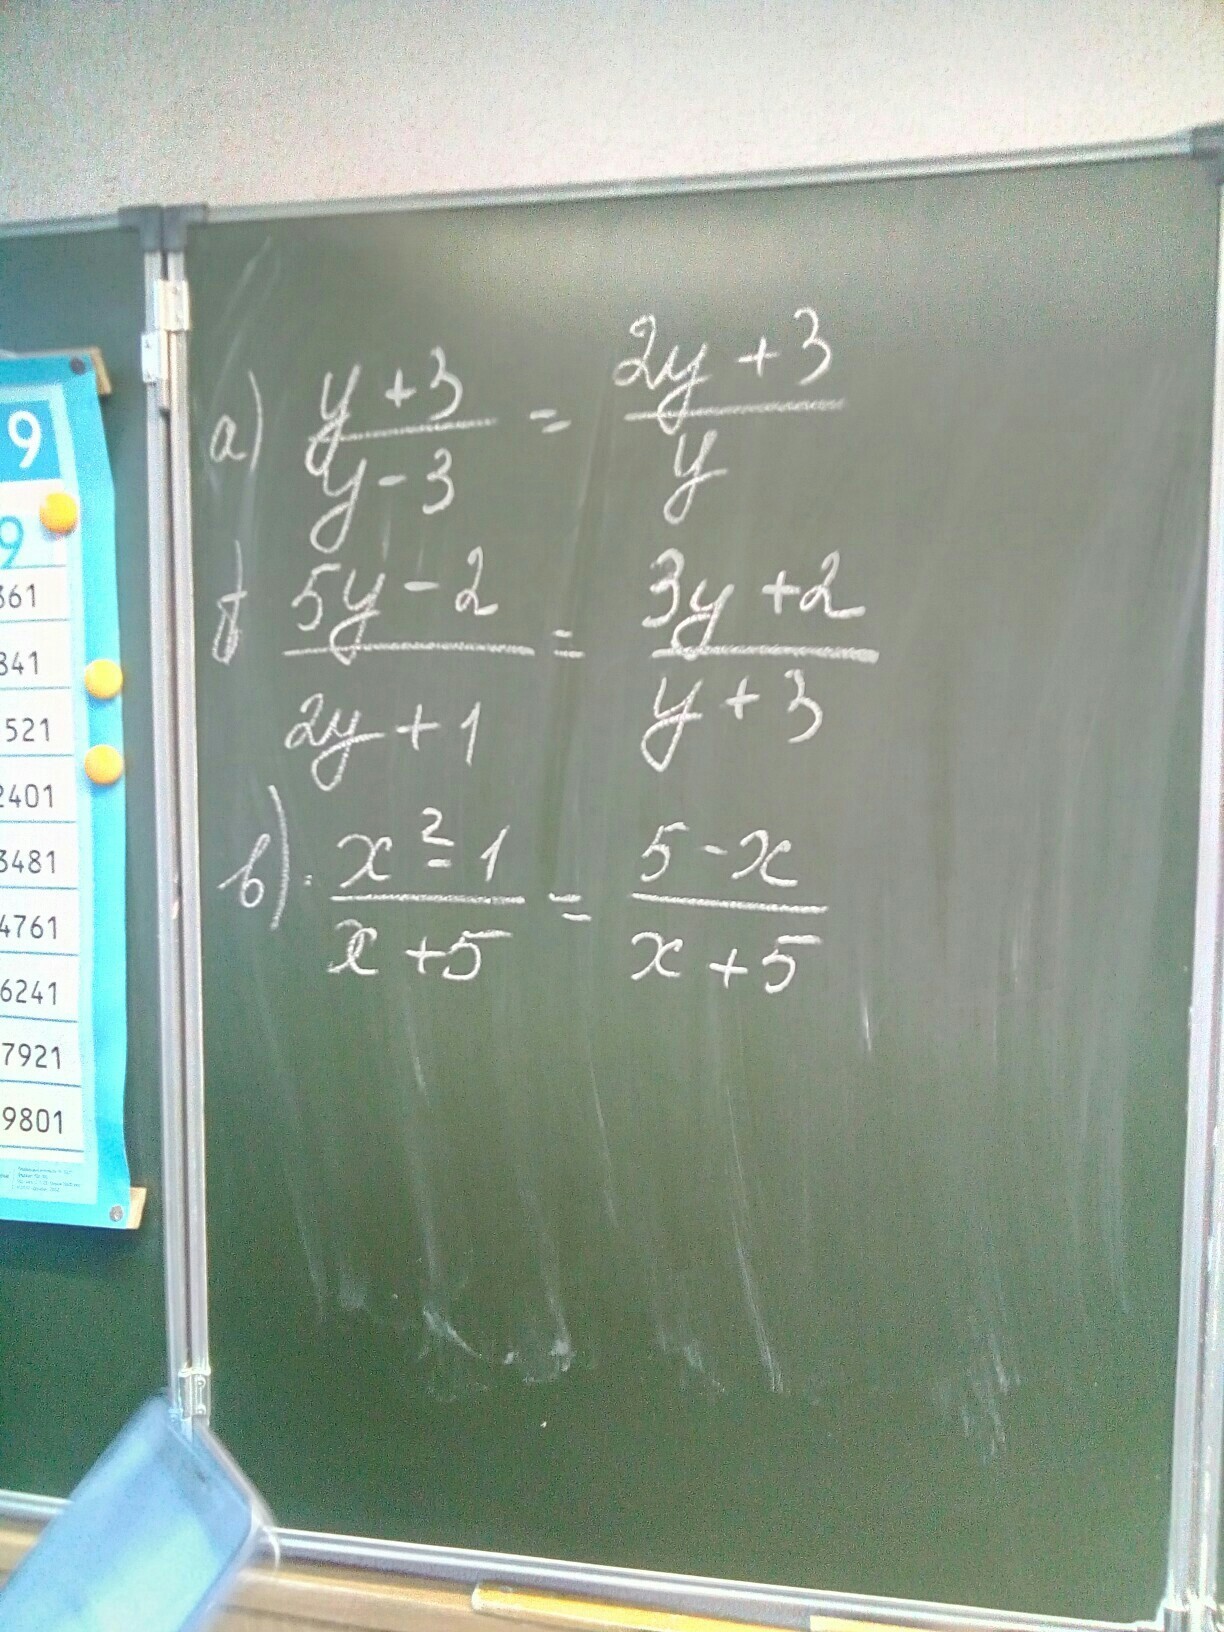 9
9
361
841
521
2401
3481
4761
6241
7921
9801
а) (y + 3)/(y - 3) = (2y + 3)/y
б (5y - 2)/(2y + 1) = (3y + 2)/(y + 3)
в) (x² - 1)/(x + 5) = (5 - x)/(x + 5)